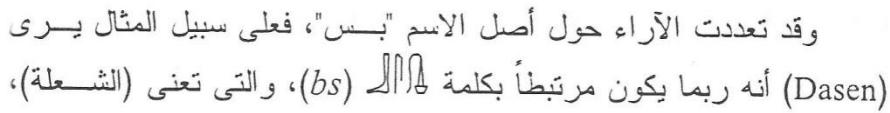 وقد تعددت الآراء حول أصل الاسم "بــس"، فعلى سبيل المثال يــرى
(Dasen) أنه ربما يكون مرتبطاً بكلمة (bs)، والتى تعنى (الشــعلة)،